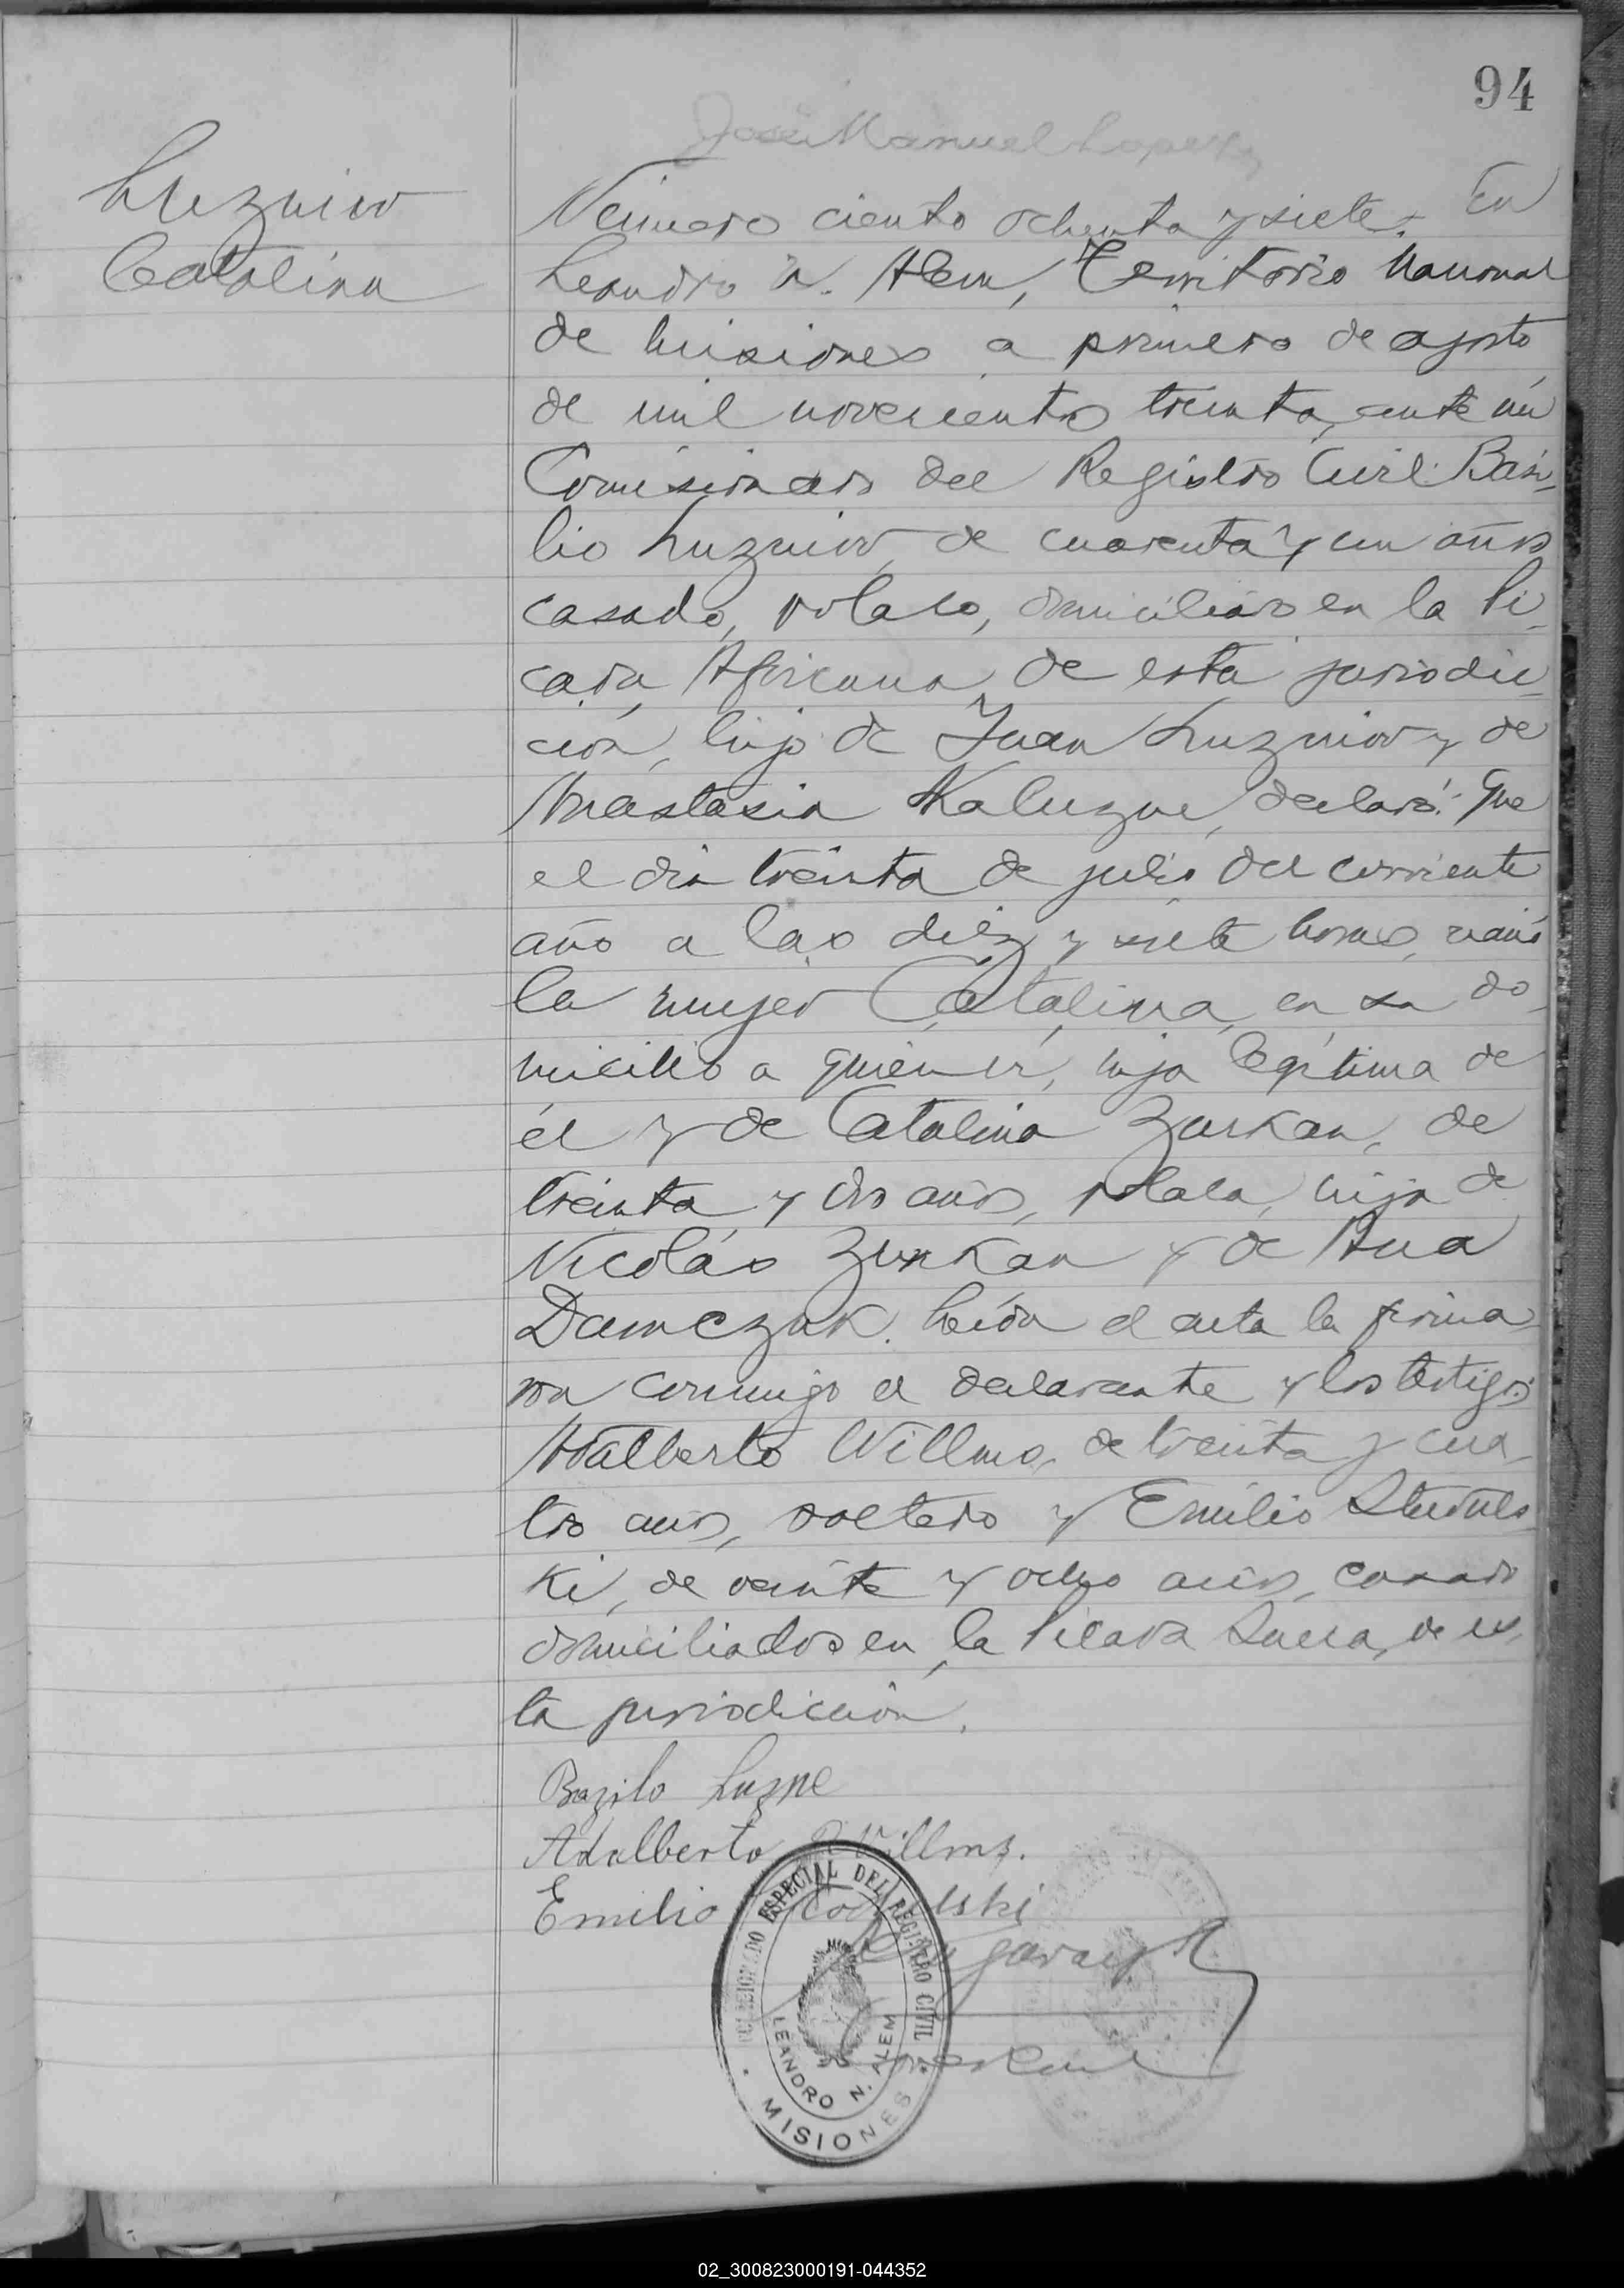 94
José Manuel Lopez
Luzniw
Catalina
Número ciento ochenta y siete. En
Leandro N. Alem, Territorio Nacional
de Misiones a primero de agosto
de mil novecientos treinta, ante mí
Comisionado del Registro Civil: Basi-
lio Luzniw, de cuarenta y un años
casado, polaco, domiciliado en la Pi-
cada Africana de esta jurisdic-
ción, hijo de Juan Luzniw y de
Anastasia Kaluzne, declaró: Que
el día treinta de julio del corriente
año a las diez y siete horas, nació
la mujer Catalina, en su do-
micilio a quien ví, hija legítima de
él y de Catalina Zurkan, de
treinta y dos años, polaca, hija de
Nicolás Zurkan y de Ana
Damczuk. Leída el acta la firma-
ron conmigo el declarante y los testigos:
Adalberto Willms, de treinta y cua-
tro años, soltero y Emilio
ki, de veinte y ocho años, casado
domiciliados en la Picada Sueca, de es-
ta jurisdicción.
Bazilo Luzne
Adalberto Willms.
Emilio
COMISIONADO ESPECIAL DEL REGISTRO CIVIL
LEANDRO N. ALEM
MISIONES
02_300823000191-044352